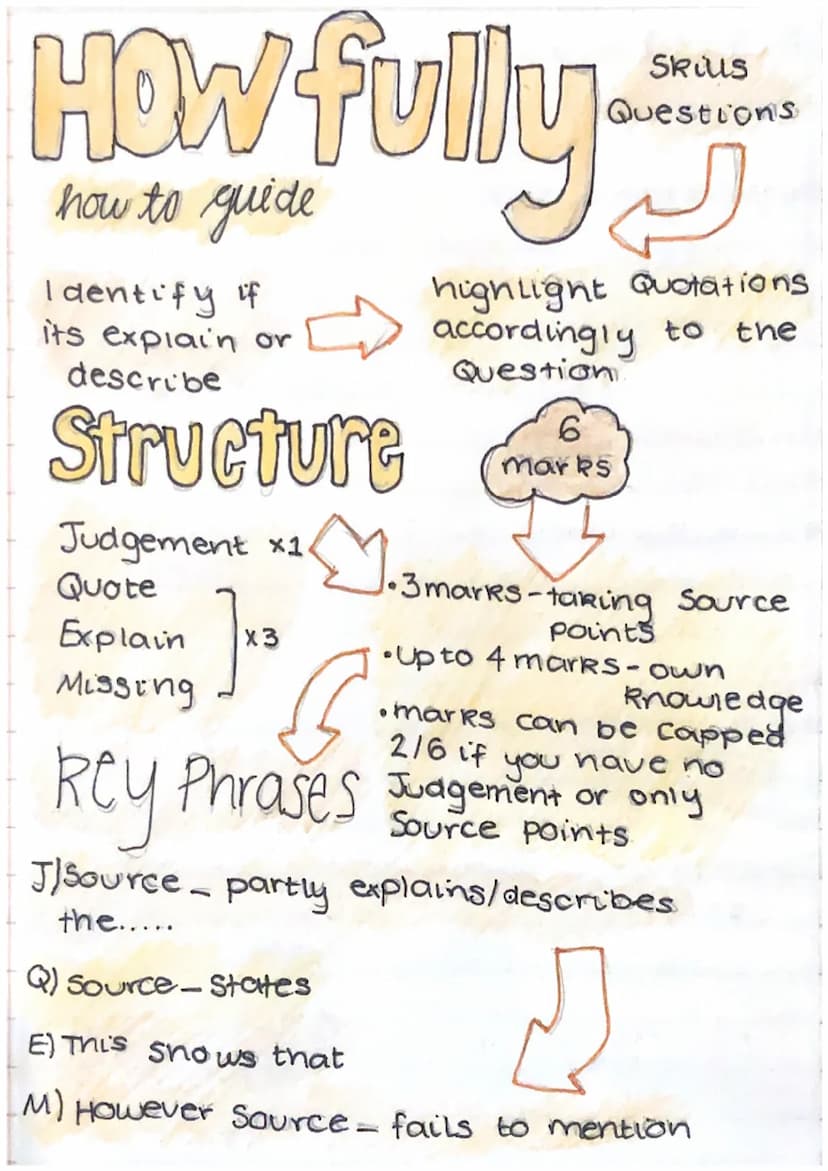 How fully
Skills
Questions
how to guide
Identify if
its explain or
describe
highlight Quotations
accordingly to the
Question
Structure
6
marks
Judgement x1
Quote
Explain
Missing
x3
•3marks-taking Source
points
•Up to 4 marks- own
knowledge
•marks can be capped
2/6 if you have no
Judgement or only
Source points
Key Phrases
J)Source_ partly explains/describes
the.....
Q) Source_ States
E) This shows that
M) However Source_ fails to mention